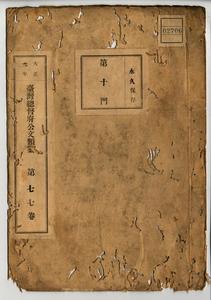 02706
永久保存
第十門
大正元年
臺灣總督府公文類纂
第七七卷